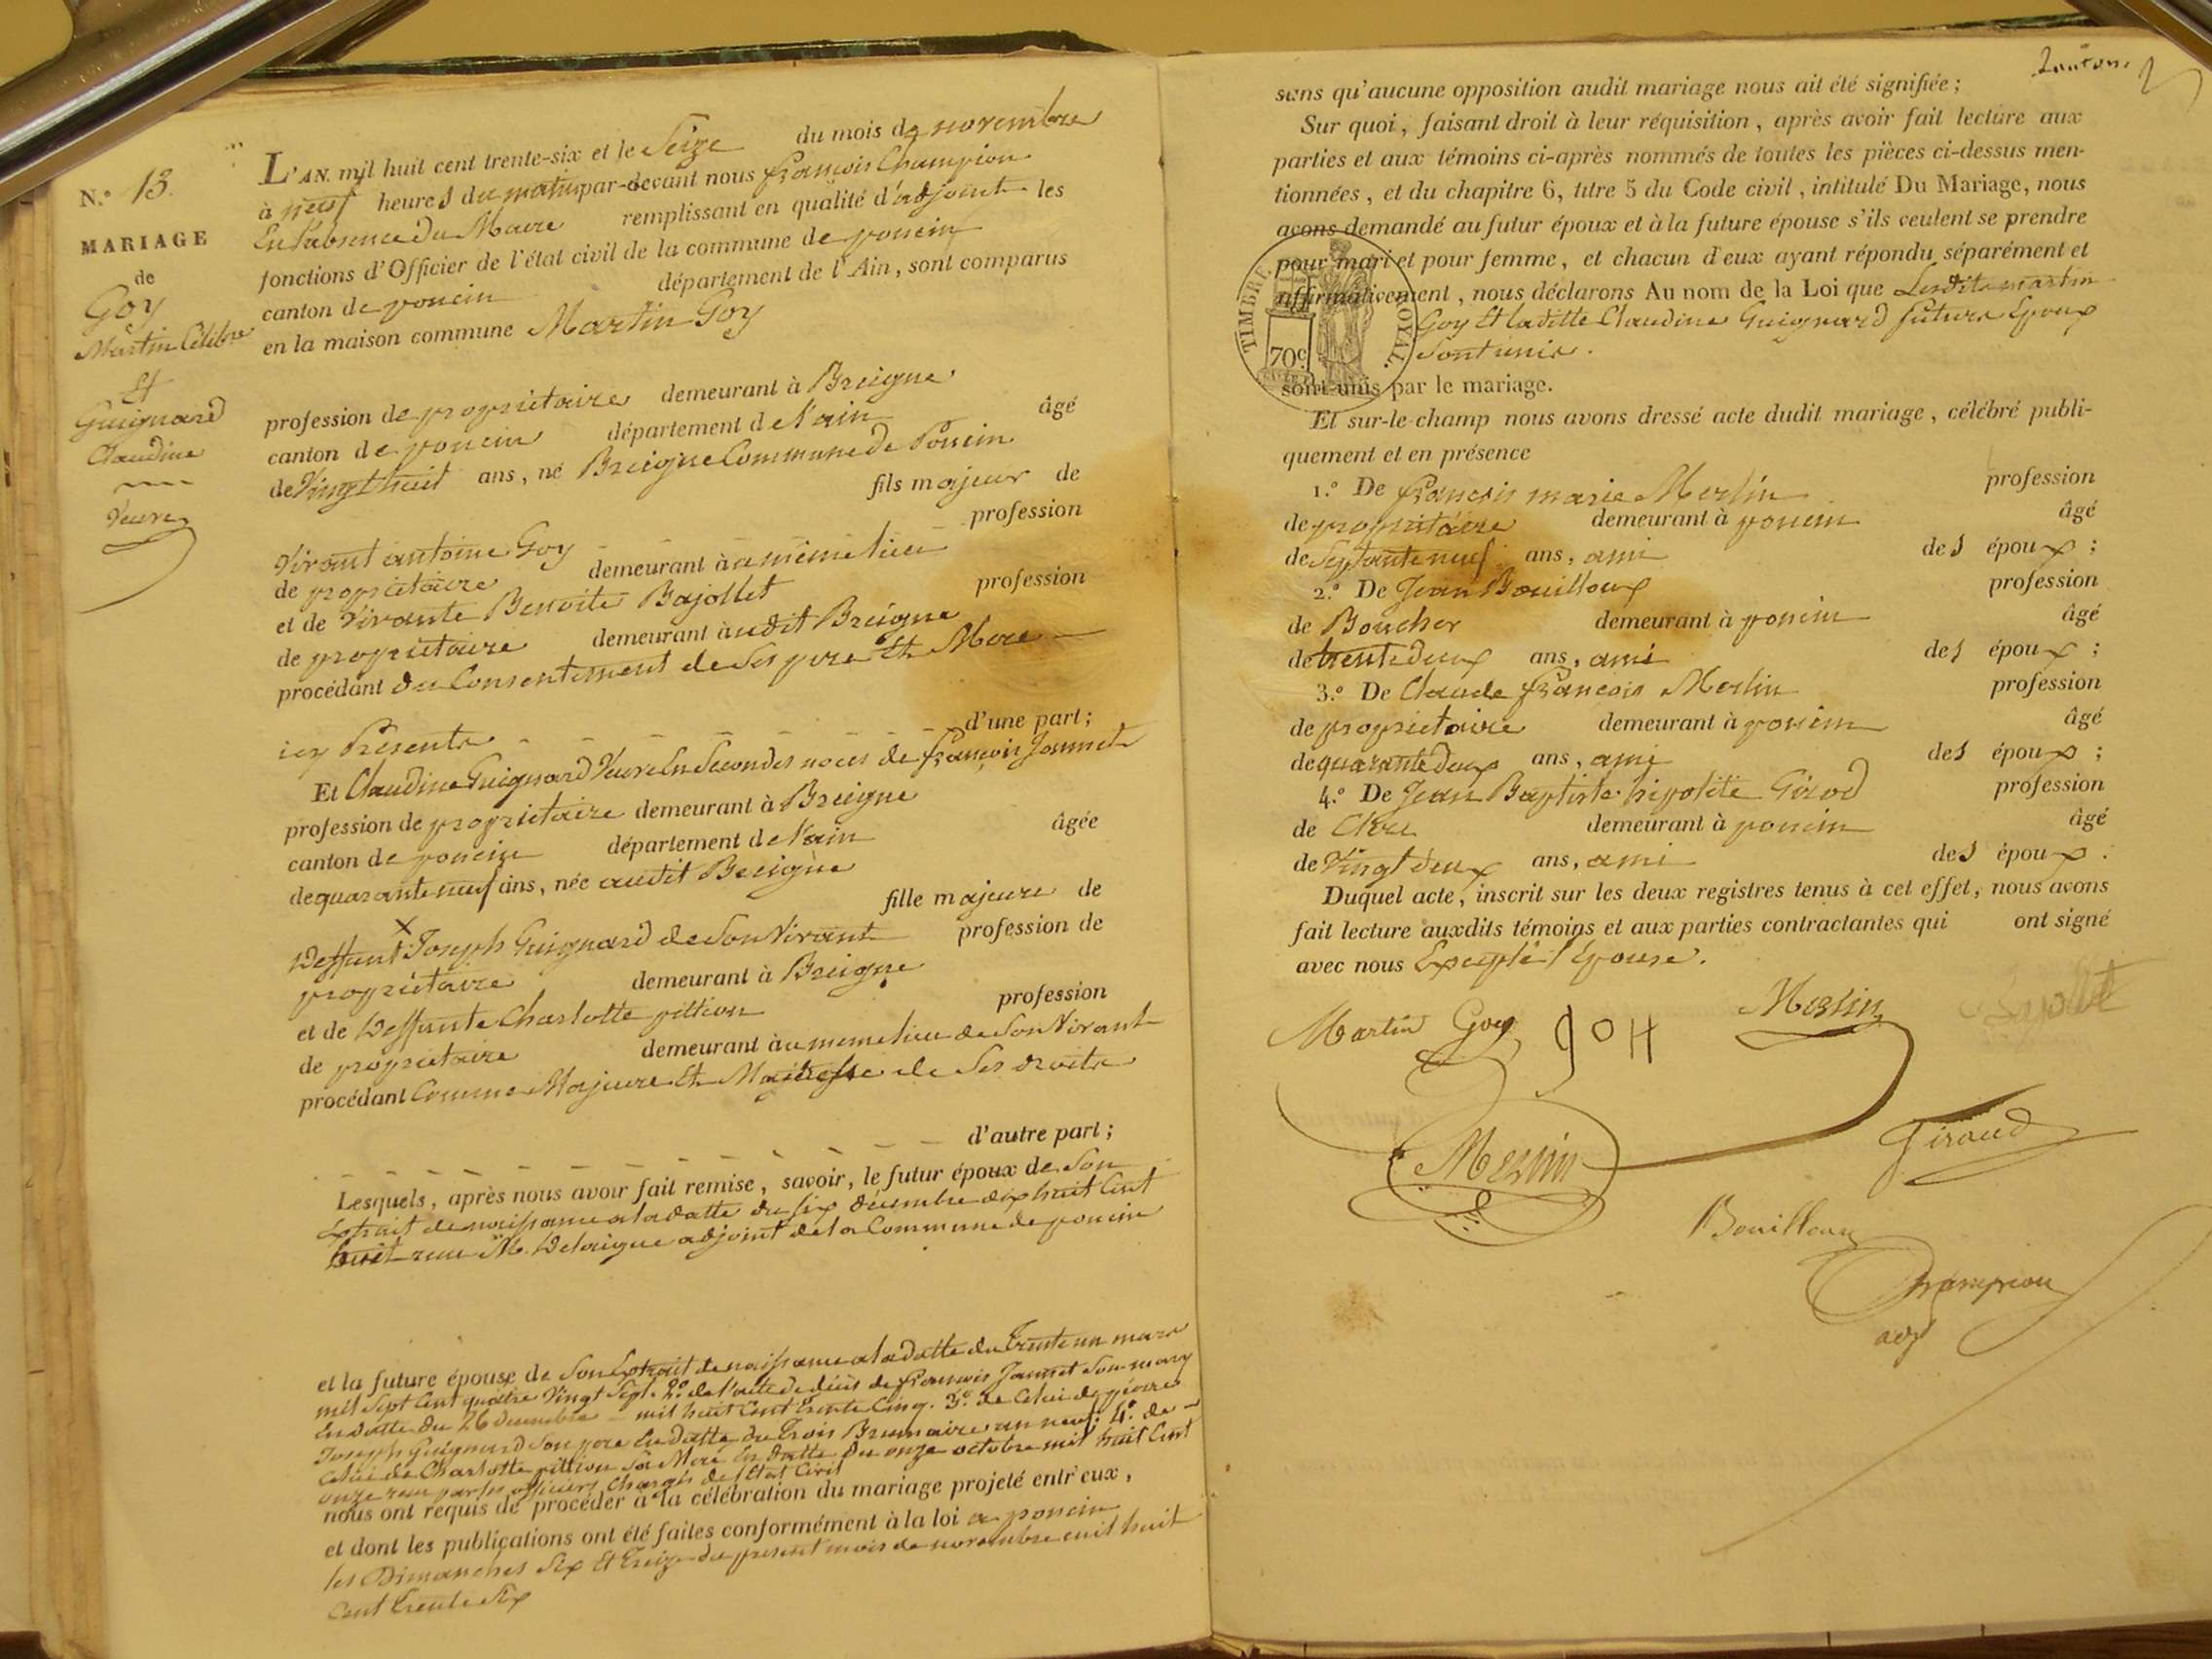 N.º 13.
MARIAGE
de
Goy
Martin Célibre
Et
Guignard
Claudine
Veuve
L'AN mil huit cent trente-six et le Seize du mois de novembre
à neuf heures du matin par-devant nous françois Champion
En l'absence du Maire remplissant en qualité d'adjoint les
fonctions d'Officier de l'état civil de la commune de poncin
canton de poncin département de l'Ain, sont comparus
en la maison commune Martin Goy
profession de proprietaire demeurant à Breigne
canton de poncin département de l'ain âgé
de Vingt huit ans, né Breigne Commune de Poncin
fils majeur de
Vivant antoine Goy profession
de proprietaire demeurant à a même lieu
et de Vivante Benoite Bajollet profession
de proprietaire demeurant à udit Breigne
procédant du Consentement de Ses pere Et Mere
icy Présents d'une part;
Et Claudine Guignard Veuve En Secondes noces de françois Jannet
profession de proprietaire demeurant à Breigne
canton de poncin département de l'ain âgée
de quarante neuf ans, née audit Breigne
fille majeure de
Deffunt Joseph Guignard de Son Vivant profession de
proprietaire demeurant à Breigne
et de Deffunte Charlotte pittion profession
de proprietaire demeurant à u meme lieu de Son Vivant
procédant Comme Majeure Et Maitresse de Ses droits
d'autre part;
Lesquels, après nous avoir fait remise, savoir, le futur époux de Son
Extrait de naissance a la datte du six décembre dix huit Cent
huit recu M. Delaigue adjoint de la Commune de poncin
et la future épouse de Son Extrait de naissance a la datte du Trente un mars
mil Sept Cent quatre Vingt Sept. 2.º de l'acte de décès de françois Jannet Son mary
En datte du 26 decembre mil huit Cent trente Cinq. 3.º de Celui de
Joseph Guignard Son pere En datte du Trois Brumaire an neuf. 4.º de
Celui de Charlotte pittion Sa Mere En datte du onze octobre mil huit Cent
onze recu par les officiers Chargés de l'Etat Civil
nous ont requis de procéder à la célébration du mariage projeté entr'eux,
et dont les publications ont été faites conformément à la loi a poncin
les Dimanches Six Et Treize du present mois de novembre mil huit
Cent trente Six
sans qu'aucune opposition audit mariage nous ait été signifiée;
Sur quoi, faisant droit à leur réquisition, après avoir fait lecture aux
parties et aux témoins ci-après nommés de toutes les pièces ci-dessus men-
tionnées, et du chapitre 6, titre 5 du Code civil, intitulé Du Mariage, nous
avons demandé au futur époux et à la future épouse s'ils veulent se prendre
pour mari et pour femme, et chacun d'eux ayant répondu séparément et
affirmativement, nous déclarons Au nom de la Loi que Lesdits martin
Goy Et laditte Claudine Guignard futurs Epoux
Sont unis.
sont unis par le mariage.
TIMBRE ROYAL
70c
Et sur-le-champ nous avons dressé acte dudit mariage, célébré publi-
quement et en présence
1.º De françois marie Merlin profession
de proprietaire demeurant à poncin âgé
de Septante neuf ans, ami des époux;
2.º De Jean Bouilloux profession
de Boucher demeurant à poncin âgé
de trente deux ans, ami des époux;
3.º De Claude françois Merlin profession
de proprietaire demeurant à poncin âgé
de quarante deux ans, ami des époux;
4.º De Jean Baptiste hipolite Girod profession
de Clerc demeurant à poncin âgé
de Vingt deux ans, ami des époux.
Duquel acte, inscrit sur les deux registres tenus à cet effet, nous avons
fait lecture auxdits témoins et aux parties contractantes qui ont signé
avec nous Excepté l'épouse.
Martin Goy goy Merlin
Merlin
Giraud
Bouilloux
Champion
adj